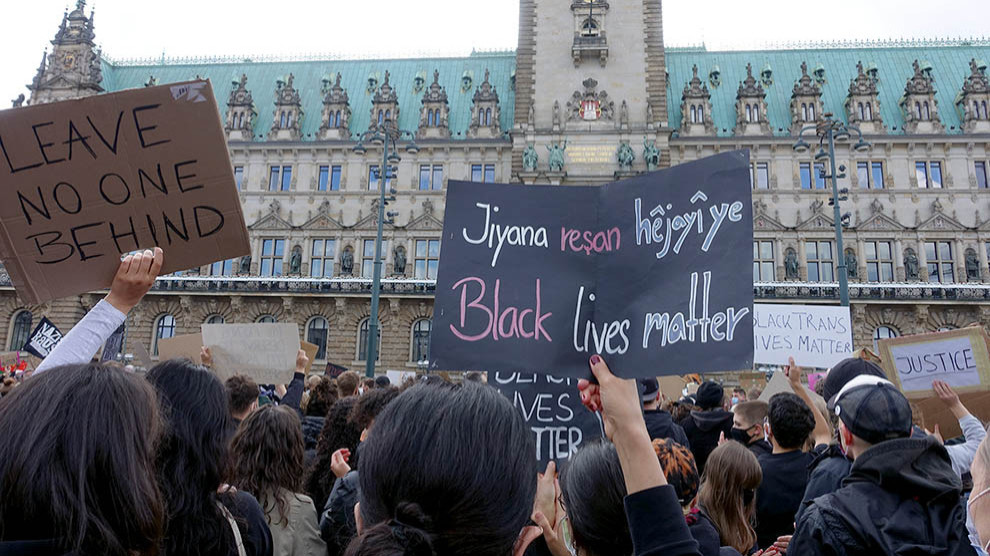 LEAVE
NO ONE
BEHIND
Jiyana reşan hêjayî ye
Black lives matter
BLACK TRANS
LIVES MATTER
JUSTICE
LIVES
TTER